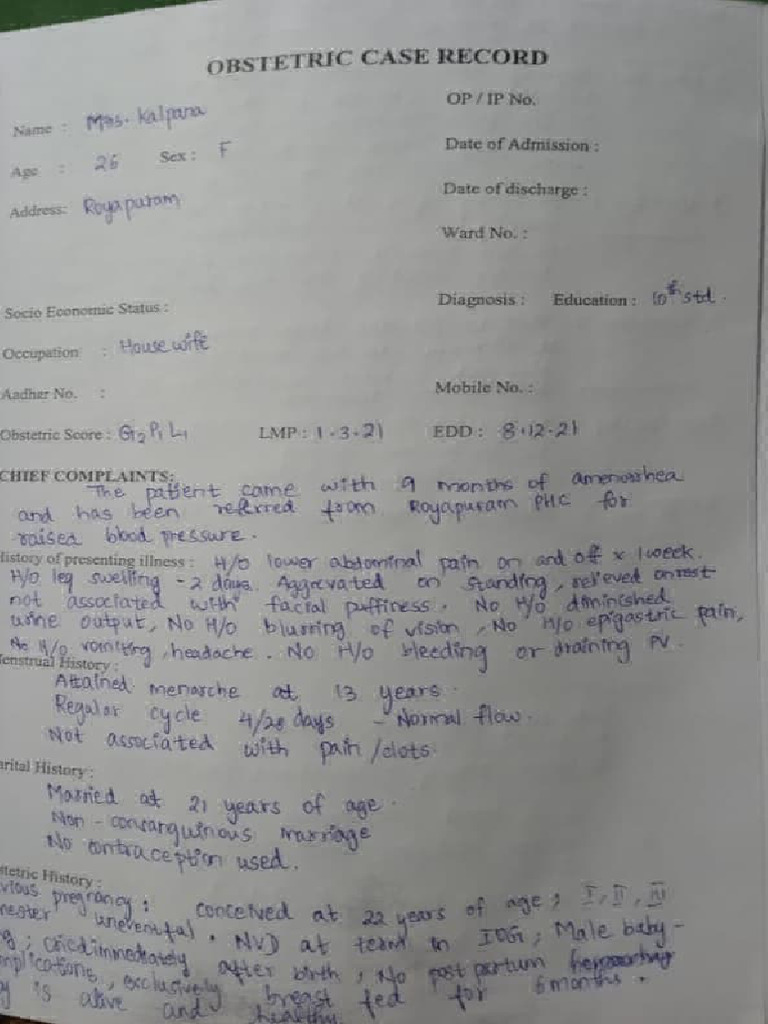 OBSTETRIC CASE RECORD
Name : Mrs. Kalpana
OP / IP No.
Age : 26 Sex : F
Date of Admission :
Address: Royapuram
Date of discharge :
Ward No. :
Socio Economic Status :
Diagnosis : Education : 10th std.
Occupation : House wife
Aadhar No. :
Mobile No. :
Obstetric Score : G2 P1 L1 LMP : 1-3-21 EDD : 8.12.21
CHIEF COMPLAINTS:
The patient came with 9 months of amenorrhea
and has been referred from Royapuram PHC for
raised blood pressure.
History of presenting illness : H/o lower abdominal pain on and off x 1 week.
H/o leg swelling - 2 days. Aggrevated on standing, relieved on rest
not associated with facial puffiness. No H/o diminished
urine output, No H/o blurring of vision, No H/o epigastric pain,
No H/o vomiting, headache. No H/o bleeding or draining PV.
enstrual History :
Attained menarche at 13 years.
Regular cycle 4/28 days - Normal flow.
Not associated with pain /clots.
arital History :
Married at 21 years of age.
Non - consanguinous marriage
No contraception used.
stetric History :
vious pregnancy : conceived at 22 years of age ; I, II, III
mester uneventful. NVD at term in IOG ; Male baby -
; cried immediately after birth ; No post partum
mplications, exclusively breast fed for 6 months.
is alive and healthy